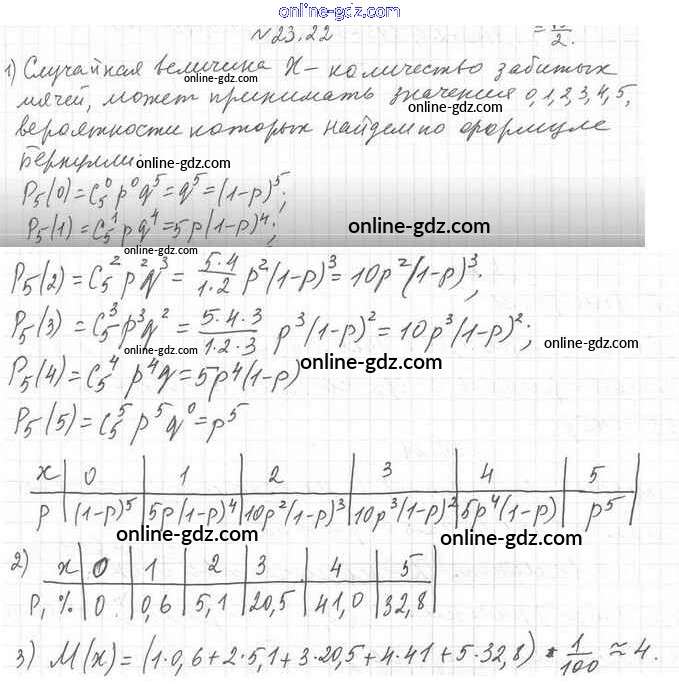 online-gdz.com
№23.22
1) Случайная величина X – количество забитых
online-gdz.com
мячей, может принимать значения 0,1,2,3,4,5,
online-gdz.com
вероятности которых найдем по формуле
Бернулли online-gdz.com
P₅(0)=C₅⁰p⁰q⁵=q⁵=(1-p)⁵;
P₅(1)=C₅¹pq⁴=5p(1-p)⁴;
online-gdz.com
online-gdz.com
P₅(2)=C₅²p²q³=5·4/1·2 p²(1-p)³=10p²(1-p)³;
P₅(3)=C₅³p³q²=5·4·3/1·2·3 p³(1-p)²=10p³(1-p)²;
online-gdz.com
online-gdz.com
P₅(4)=C₅⁴p⁴q=5p⁴(1-p)
P₅(5)=C₅⁵p⁵q⁰=p⁵
x 0 1 2 3 4 5
p (1-p)⁵ 5p(1-p)⁴ 10p²(1-p)³ 10p³(1-p)² 5p⁴(1-p) p⁵
online-gdz.com
online-gdz.com
2) x 0 1 2 3 4 5
P, % 0 0,6 5,1 20,5 41,0 32,8
3) M(x)=(1·0,6+2·5,1+3·20,5+4·41+5·32,8)·1/100≈4.
online-gdz.com